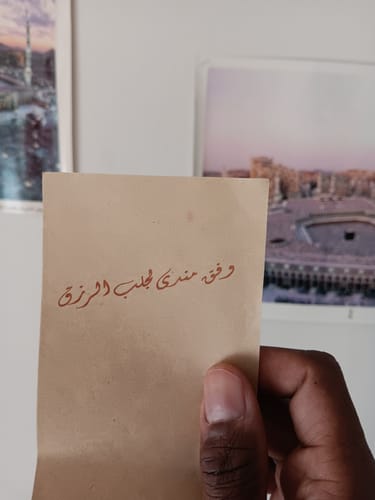 وفق مندى لجلب الرزق